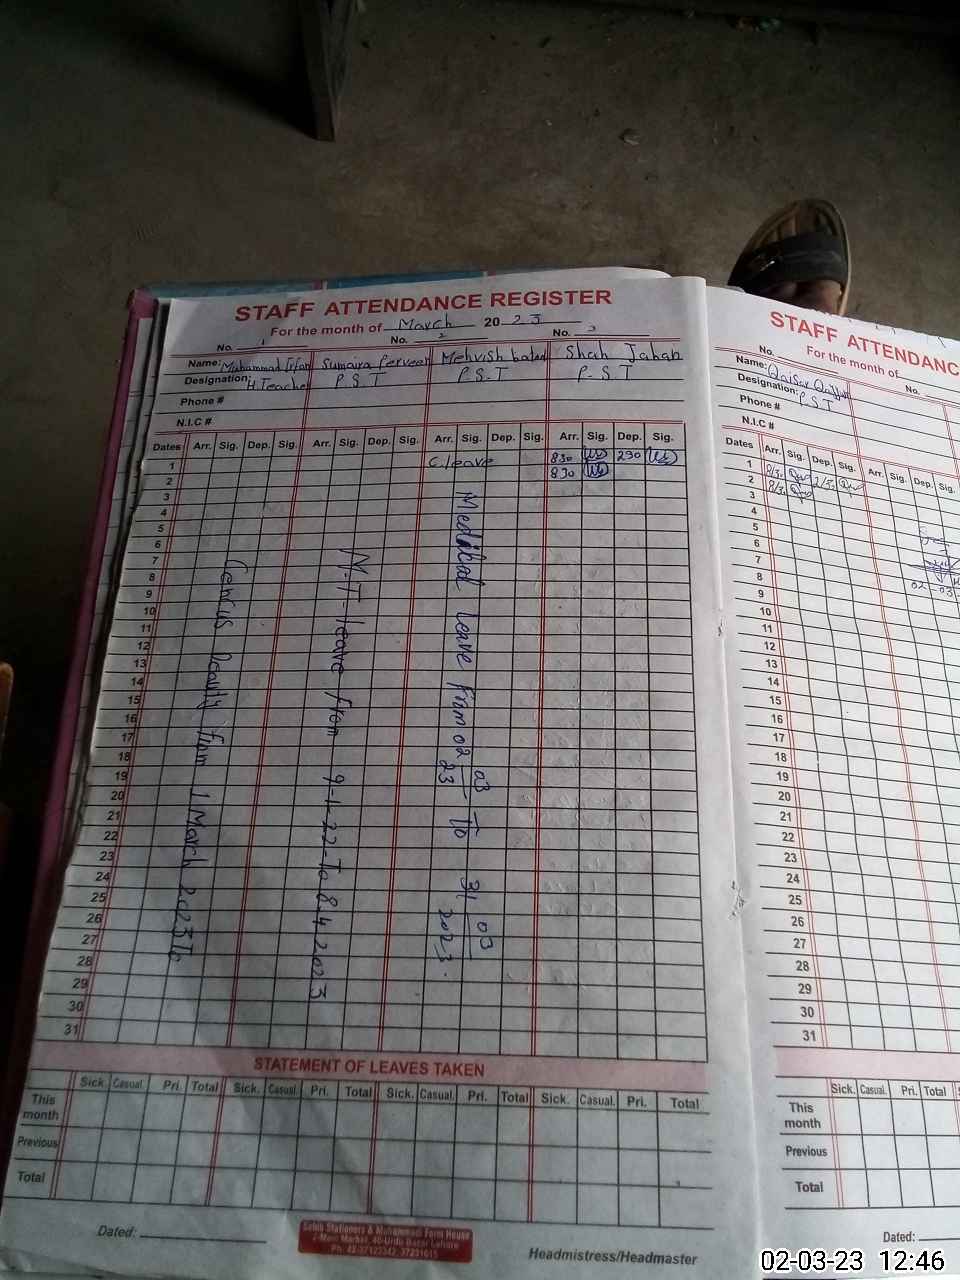 STAFF ATTENDANCE REGISTER
For the month of March 2023
No. 1 No. 2 No. 3
Name: Muhammad Irfan Sumaira Perveen Mehvish Shah Jahan
Designation: H.Teacher P.S.T P.S.T P.S.T
Phone #
N.I.C #
Dates Arr. Sig. Dep. Sig. Arr. Sig. Dep. Sig. Arr. Sig. Dep. Sig. Arr. Sig. Dep. Sig.
1 C.leave 830 230
2 830
3
4
5
6
7
8
9
10
11
12
13
14
15
16
17
18
19
20
21
22
23
24
25
26
27
28
29
30
31
leave from 1 March 2023 To
M.T-leave from 9-1-22-To 8 4 2023
Medical leave from 02 03 23 To 31 03 2023.
STATEMENT OF LEAVES TAKEN
Sick. Casual. Pri. Total Sick. Casual. Pri. Total Sick. Casual. Pri. Total Sick. Casual. Pri. Total
This month
Previous
Total
Dated:
Sabih Stationers & Muhammadi Form House
2-Main Market, 40-Urdu Bazar Lahore
Ph: 42-37123342, 37231615
Headmistress/Headmaster
STAFF ATTENDANC
For the month of
No. No.
Name: Qaisar
Designation: P.S.T
Phone #
N.I.C #
Dates Arr. Sig. Dep. Sig. Arr. Sig. Dep. Sig.
1
2
3
4
5
6
7
8
9
10
11
12
13
14
15
16
17
18
19
20
21
22
23
24
25
26
27
28
29
30
31
02-03-
Sick. Casual. Pri. Total
This month
Previous
Total
Dated:
02-03-23 12:46